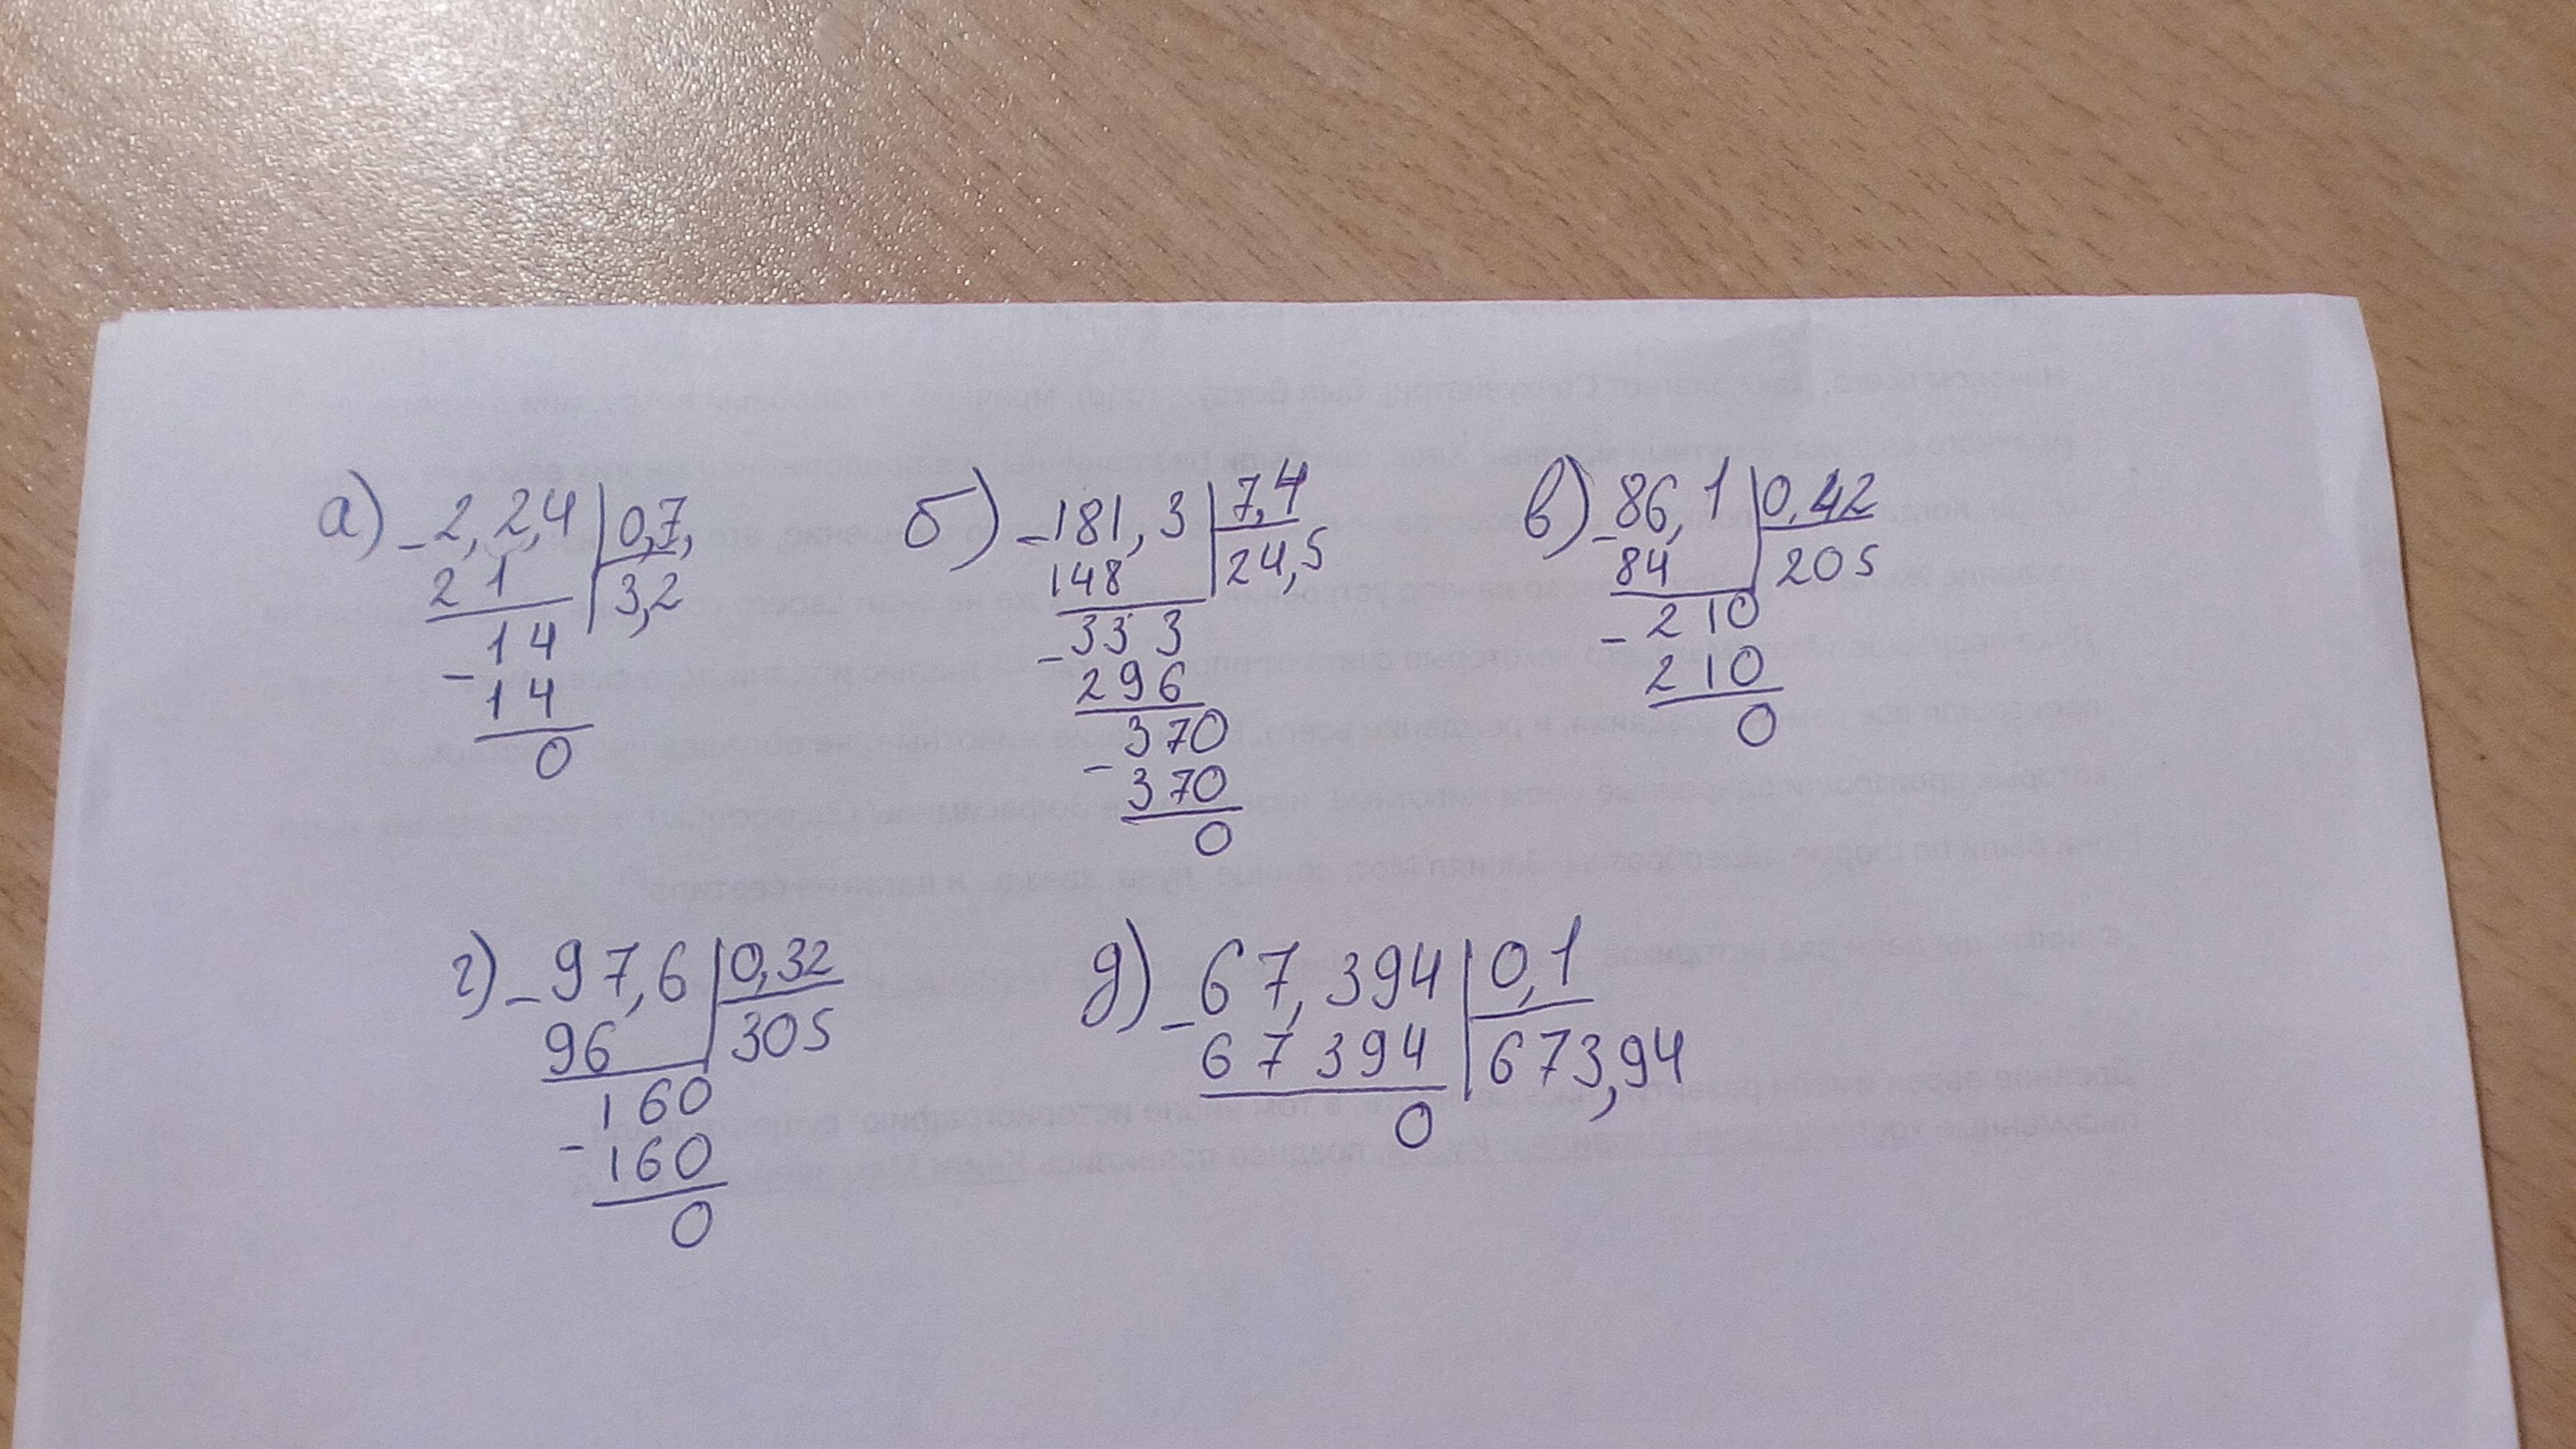 а) - 2,2,4 | 0,7,
21 | 3,2
- 14
14
0
б) - 181,3 | 7,4
148 | 24,5
- 333
296
- 370
370
0
в) - 86,1 | 0,42
84 | 205
- 210
210
0
г) - 97,6 | 0,32
96 | 305
- 160
160
0
д) - 67,394 | 0,1
67394 | 673,94
0